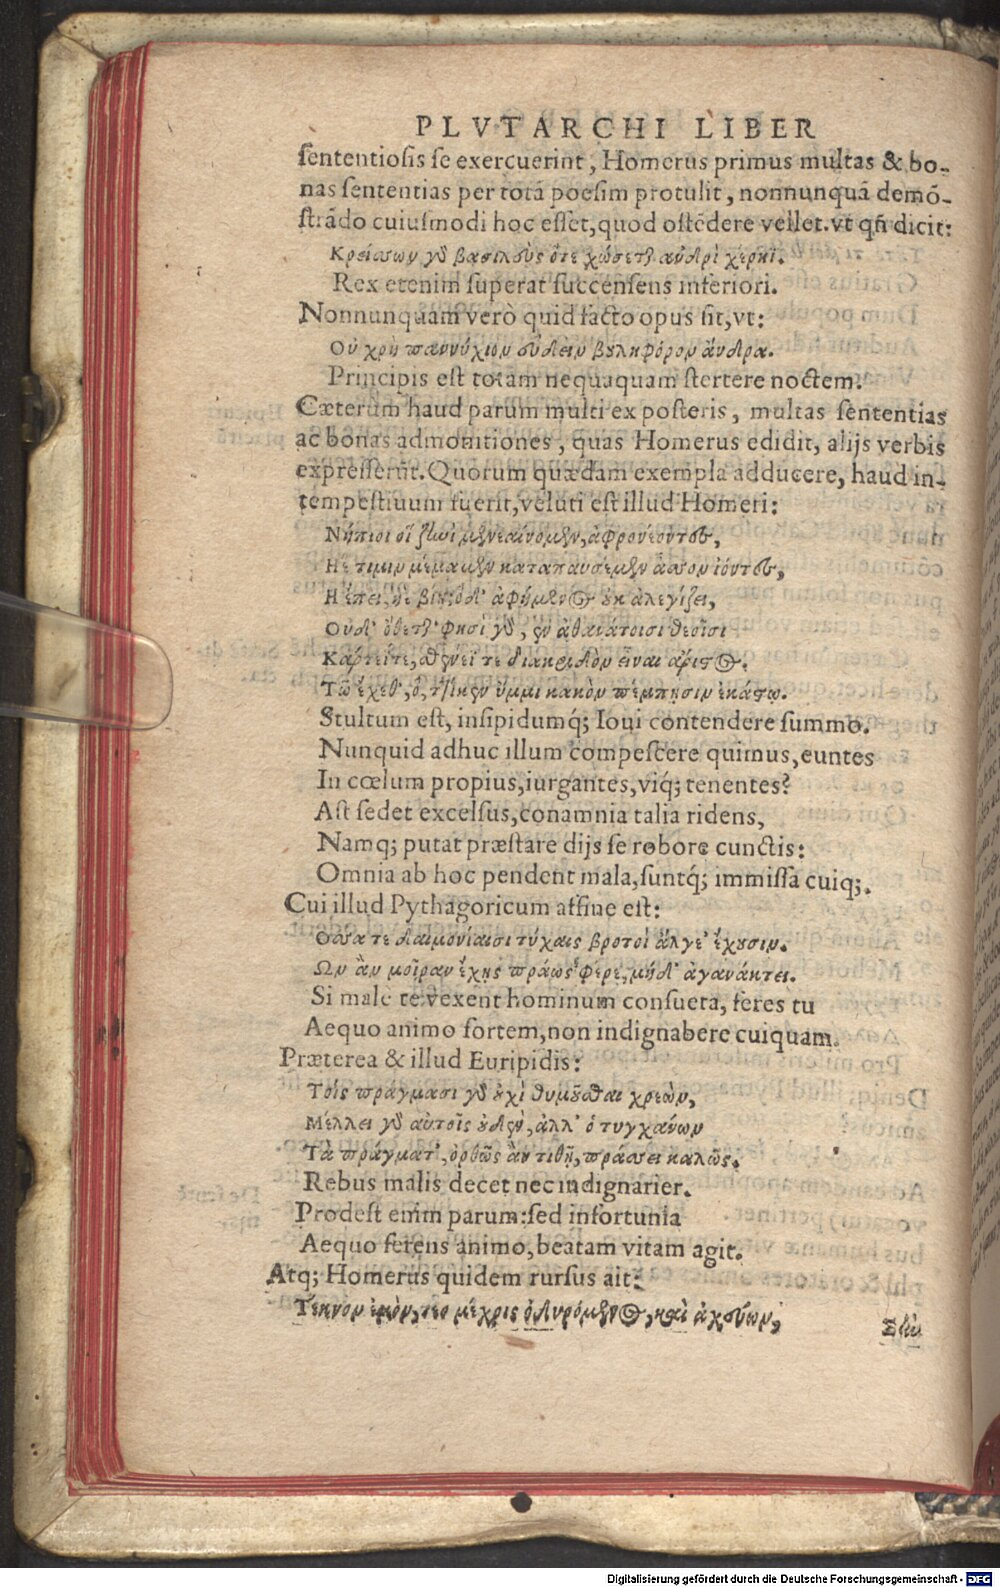 PLVTARCHI LIBER
sententiosis se exercuerint, Homerus primus multas & bo-
nas sententias per totā poesim protulit, nonnunquā demō-
strādo cuiusmodi hoc esset, quod ostēdere vellet. vt qñ dicit:
Κρείσσων γὸ βασιλεὺς ὅτε χώσεται ἀνδρὶ χέρηϊ.
Rex etenim superat succensens inferiori.
Nonnunquam verò quid facto opus sit, vt:
Οὐ χρὴ παννύχιον εὕδειν βουληφόρον ἄνδρα.
Principis est totam nequaquam stertere noctem.
Cæterum haud parum multi ex posteris, multas sententias
ac bonas admonitiones, quas Homerus edidit, alijs verbis
expresserūt. Quorum quædam exempla adducere, haud in-
tempestiuum fuerit, veluti est illud Homeri:
Νήπιοι οἳ ζηνὶ μενεαίνομεν, ἀφρονέοντες,
Ἠέ τι μιν μέμαμεν καταπαυσέμεν ἆσσον ἰόντες,
Ἠ ἔπει, ἠὲ βίῃ, ὁ δ' ἀφήμενος οὐκ ἀλεγίζει,
Οὐδ' ὄθεται· φησὶ γὸ, ἐν ἀθανάτοισι θεοῖσι
Κάρτεΐ τε, σθένεΐ τε διακριδὸν εἶναι ἄριστος.
Τῶ ἔχεθ', ὅ,ττι κεν ὔμμι κακὸν πέμπησιν ἑκάστῳ.
Stultum est, insipidumq́; Ioui contendere summo.
Nunquid adhuc illum compescere quimus, euntes
In cœlum propius, iurgantes, viq́; tenentes?
Ast sedet excelsus, conamnia talia ridens,
Namq; putat præstare dijs se robore cunctis:
Omnia ab hoc pendent mala, suntq́; immissa cuiq;.
Cui illud Pythagoricum affine est:
Ὅσσα τε δαιμονίαισι τύχαις βροτοὶ ἄλγε' ἔχουσιν.
Ὧν ἂν μοῖραν ἔχῃς πράως φέρε, μήδ' ἀγανάκτει.
Si male te vexent hominum consueta, feres tu
Aequo animo sortem, non indignabere cuiquam.
Præterea & illud Euripidis:
Τοῖς πράγμασι γὸ οὐχὶ θυμοῦσθαι χρεὼν,
Μέλλει γὸ αὐτοῖς οὐδὲν, ἀλλ' ὁ τυγχάνων
Τὰ πράγματ', ὀρθῶς ἂν τιθῇ, πράσσει καλῶς.
Rebus malis decet nec indignarier.
Prodest enim parum: sed infortunia
Aequo ferens animo, beatam vitam agit.
Atq; Homerus quidem rursus ait:
Τέκνον ἐμὸν, τέο μέχρις ὀδυρόμενος, καὶ ἀχεύων,
Σὴν
Digitalisierung gefördert durch die Deutsche Forschungsgemeinschaft - DFG